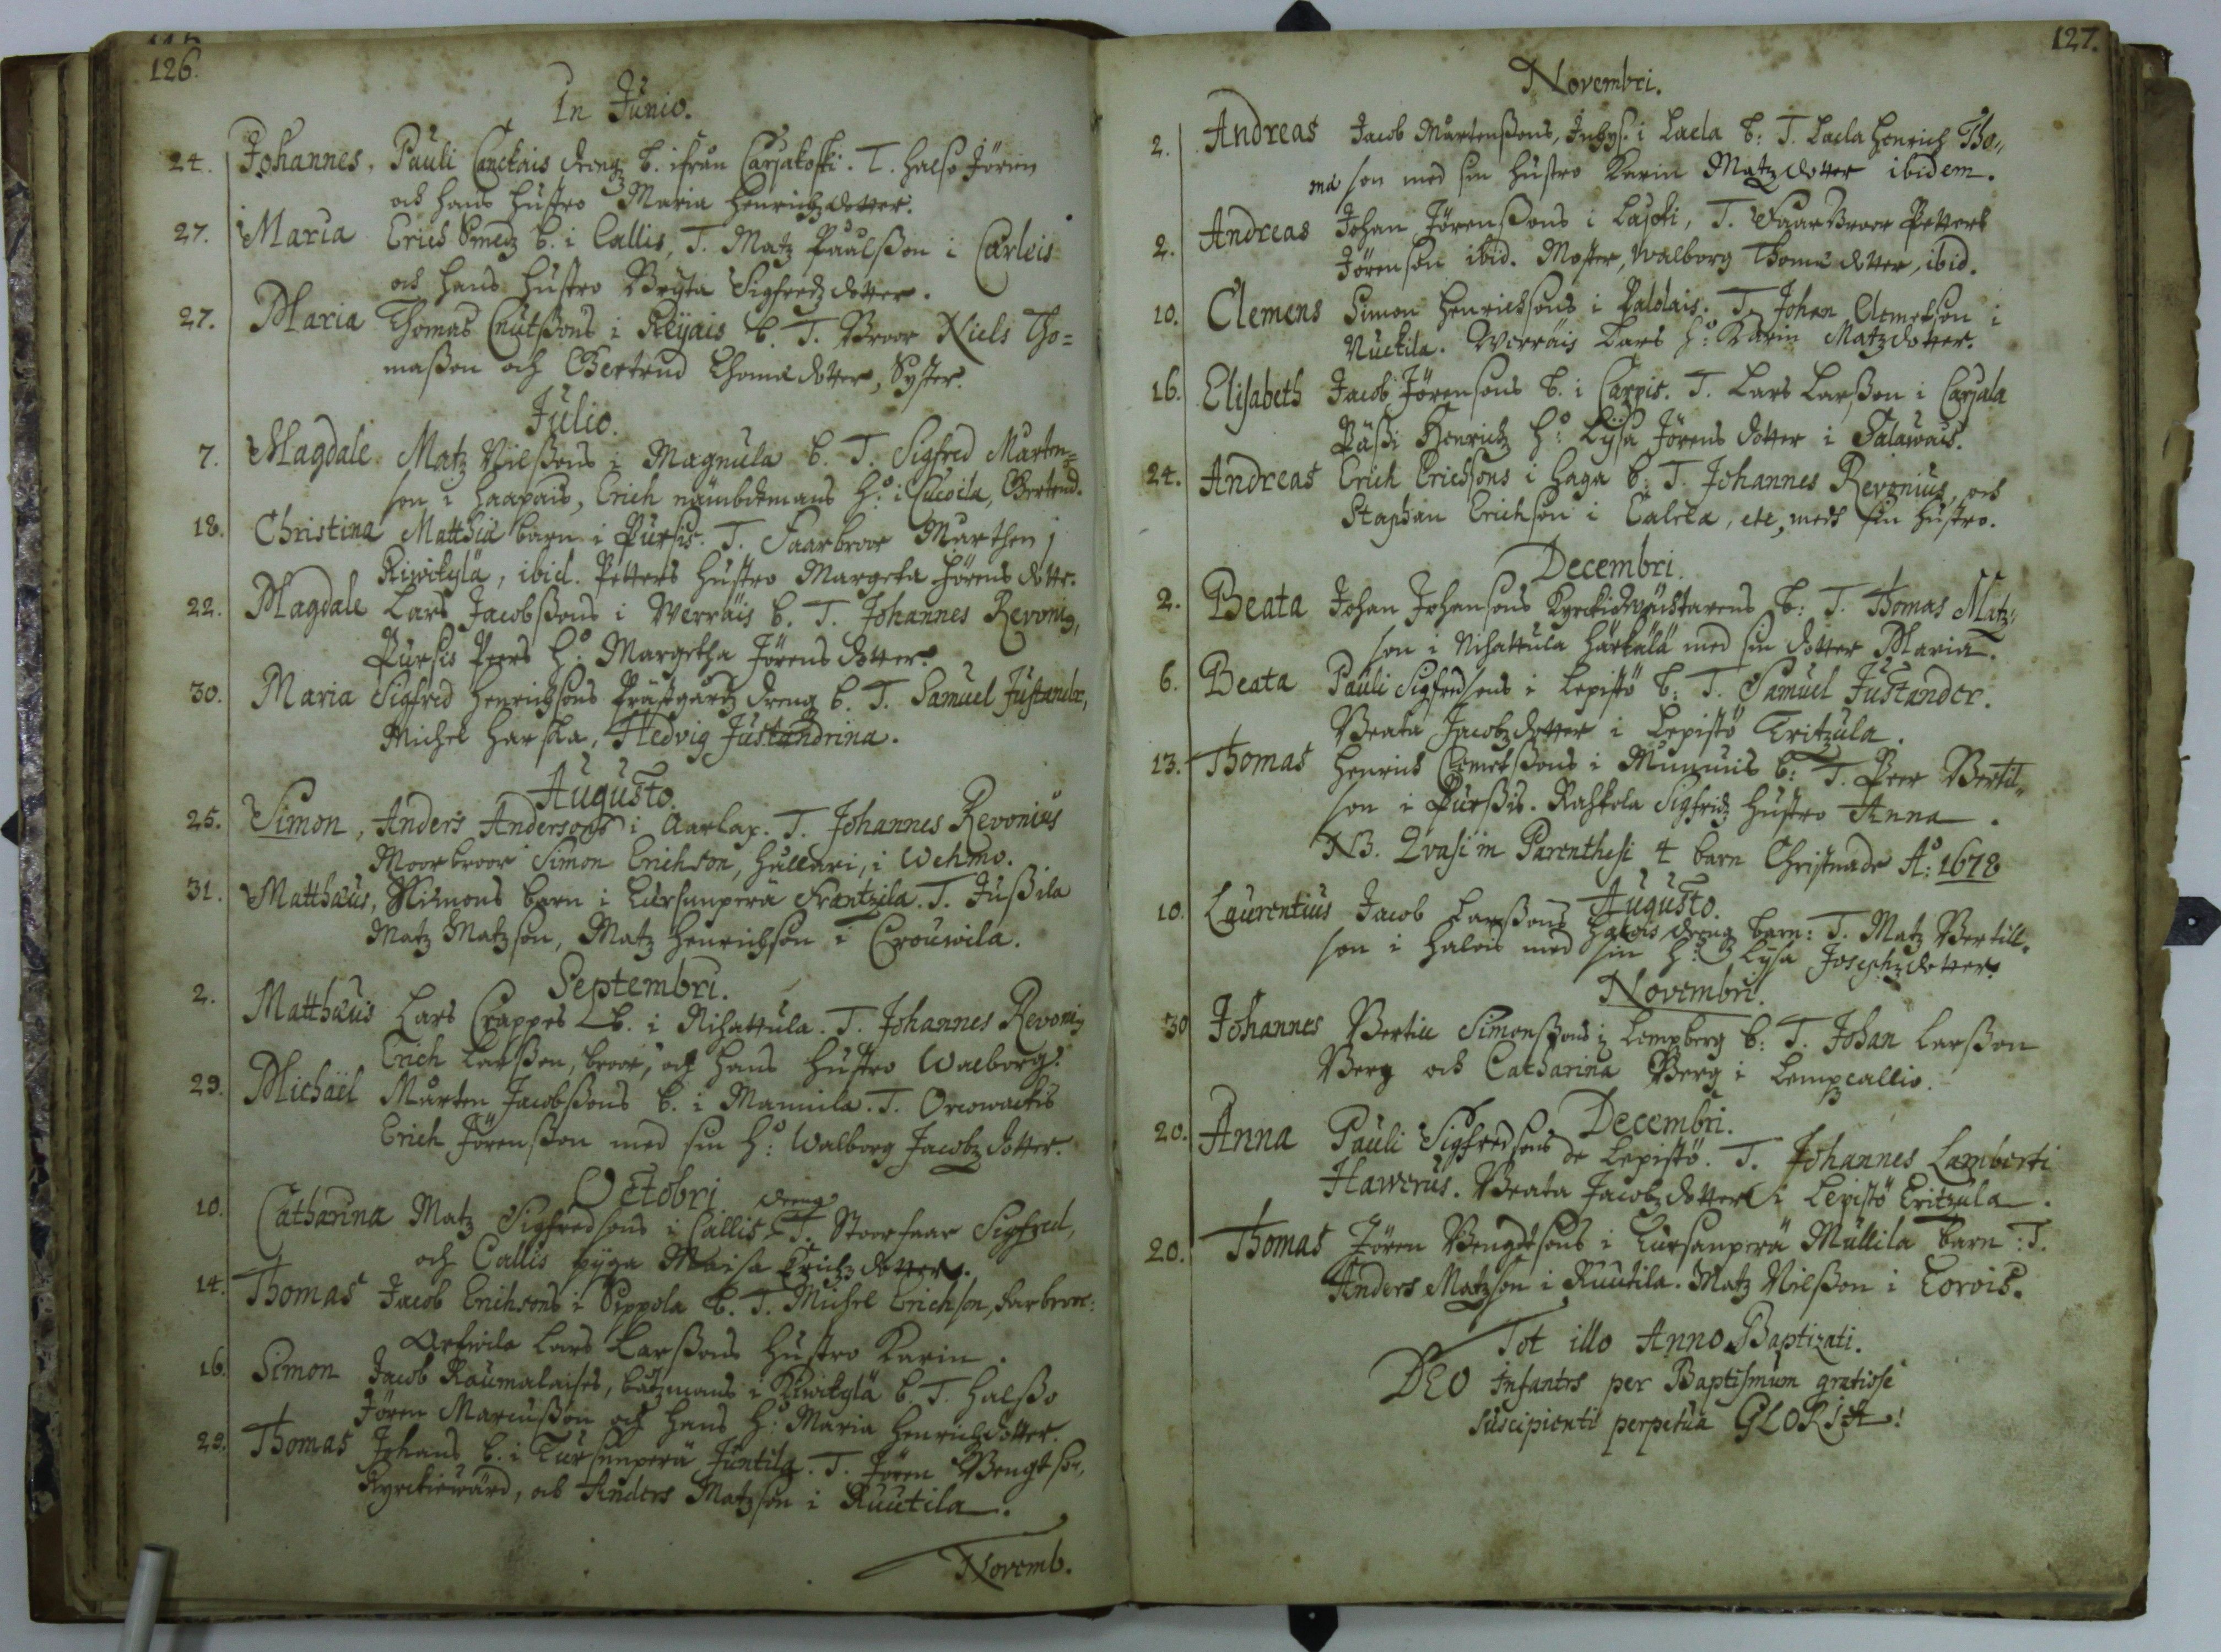 126.
In Junio.
24. Johannes, Pauli Canckais dreng b. ifrån Carjakoski. T. Halso Jören
och hans hustro Maria Henrichzdotter.
27. Maria Erich Smedz b. i Callis, T. Matz Paulsson i Carleis
och hans hustro Bryta Sigfredzdotter.
27. Maria Thomas Cnutssons i Reyais b. T. Broor Niels Tho=
masson och Gertrud Thomädotter, Syster.
Julio.
7. Magdale Matz Nilssons i Magnula b. T. Sigfred Mårten=
son i Haapais, Erich nämbdemans h:o i Cucoila, Gertrud.
18. Christina Matthiä barn i Pursis. T. Faarbroor Marthen i
Kiwikylä, ibid. Petters hustro Margeta Jörens dotter.
22. Magdale Lars Jacobssons i Werräis b. T. Johannes Revoni9,
Pursis Peers h:o Margetha Jörensdotter.
30. Maria Sigfred Henrichsons Prästgårdz dreng b. T. Samuel Justander,
Michel Harska, Hedvig Justandrina.
Augusto.
25. Simon, Anders Andersons i Aarlax. T. Johannes Revonius
Moorbroor Simon Erichson, Hullari, i Wehmo.
31. Matthæus, Simons barn i Tursunperä Frantzila. T. Jussila
Matz Matzson, Matz Henrichson i Crouwila.
Septembri.
2. Matthæus Lars Crappes b. i Nihattula. T. Johannes Revoni9
Erich Larssen, broor, och hans hustro Walborg.
29. Michaël Mårten Jacobssons b. i Mannila. T. Orowackis
Erich Jörensson med sin h:o Walborg Jacobzdotter.
Octobri
10. Catharina Matz Sigfredsons i Callis dreng T. Stoorfaar Sigfred,
och Callis pyga Maisa Erichzdotter.
14. Thomas Jacob Erichsons i Seppola b. T. Michel Erichson, farbroor:
Arfwila Lars Larssons hustro Karin.
16. Simon Jacob Raumalaises, båtzmans i Kiwikylä b. T. Halsso
Jören Marcusson och hans h:o Maria Henrichdotter.
29. Thomas Johans b. i Tursunperä Juntila. T. Jören Bengtson,
Kyrckiewärd, och Anders Matzson i Ruutila.
Novemb.
127.
Novembri.
2. Andreas Jacob Mårtenssons, Inhys. i Laela b: T. Laela Henrich Tho„
mä son med sin hustro Karin Matzdotter ibidem.
2. Andreas Johan Jörenssons i Lasoki, T. Faarbroor Petter
Jörenson ibid. Moster, Walborg Thomädotter, ibid.
10. Clemens Simon Henrichsons i Paldais. T. Johan Clemetson i
Nuckila. Werräis Lars h:o Karin Matzdotter.
16. Elisabeth Jacob Jörensons b. i Carpis. T. Lars Larsson i Carjala
Pässi Henrichz h:o Lijsa Jörens dotter i Salawais.
24. Andreas Erich Erichsons i Haga b: T. Johannes Revonius, och
Staphan Erichson i Calela, etc, medh sin hustro.
Decembri.
2. Beata Johan Johansons Kyrckiowäktarens b: T. Thomas Matz„
son i Nihattula Härkälä med sin dotter Maria.
6. Beata Pauli Sigfredsons i Lepistö b: T. Samuel Justander.
Beata Jacobzdotter i Lepistö Eritzula.
13. Thomas Henrich Clemetssons i Munnuis b: T. Peer Bertil„
son i Purssis. Rahkola Sigfridz hustro Anna.
NB. Qvasi in Parenthesi 4 barn Christnade A:o 1678
Augusto.
10. Laurentius Jacob Larssons Halois dreng barn: T. Matz Bertill„
son i Halois med sin h:o Lysa Josephzdotter.
Novembri.
30 Johannes Bertill Simonssons i Lempberg b: T. Johan Larsson
Berg och Catharina Berg i Lempcallio.
Decembri.
20. Anna Pauli Sigfredsons de Lepistö. T. Johannes Lamberti
Hawerus. Beata Jacobzdotter i Lepistö Eritzula.
20. Thomas Jören Bengdtsons i Tursanperä Mullila barn: T.
Anders Matzson i Ruutila. Matz Nilsson i Torois.
Tot illo Anno Baptizati.
DEO Infantes per Baptismum gratiose
suscipienti perpetua GLORIA!